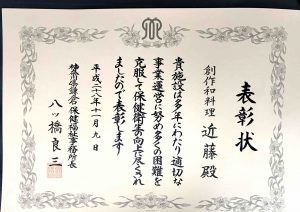 表彰状
創作和料理
近藤殿
貴施設は多年にわたり適切な
事業運営に努め多くの困難を
克服して保健衛生の向上に尽くされ
ましたので表彰します
平成二八年十一月九日
神奈川県鎌倉保健福祉事務所長
八ッ橋良三